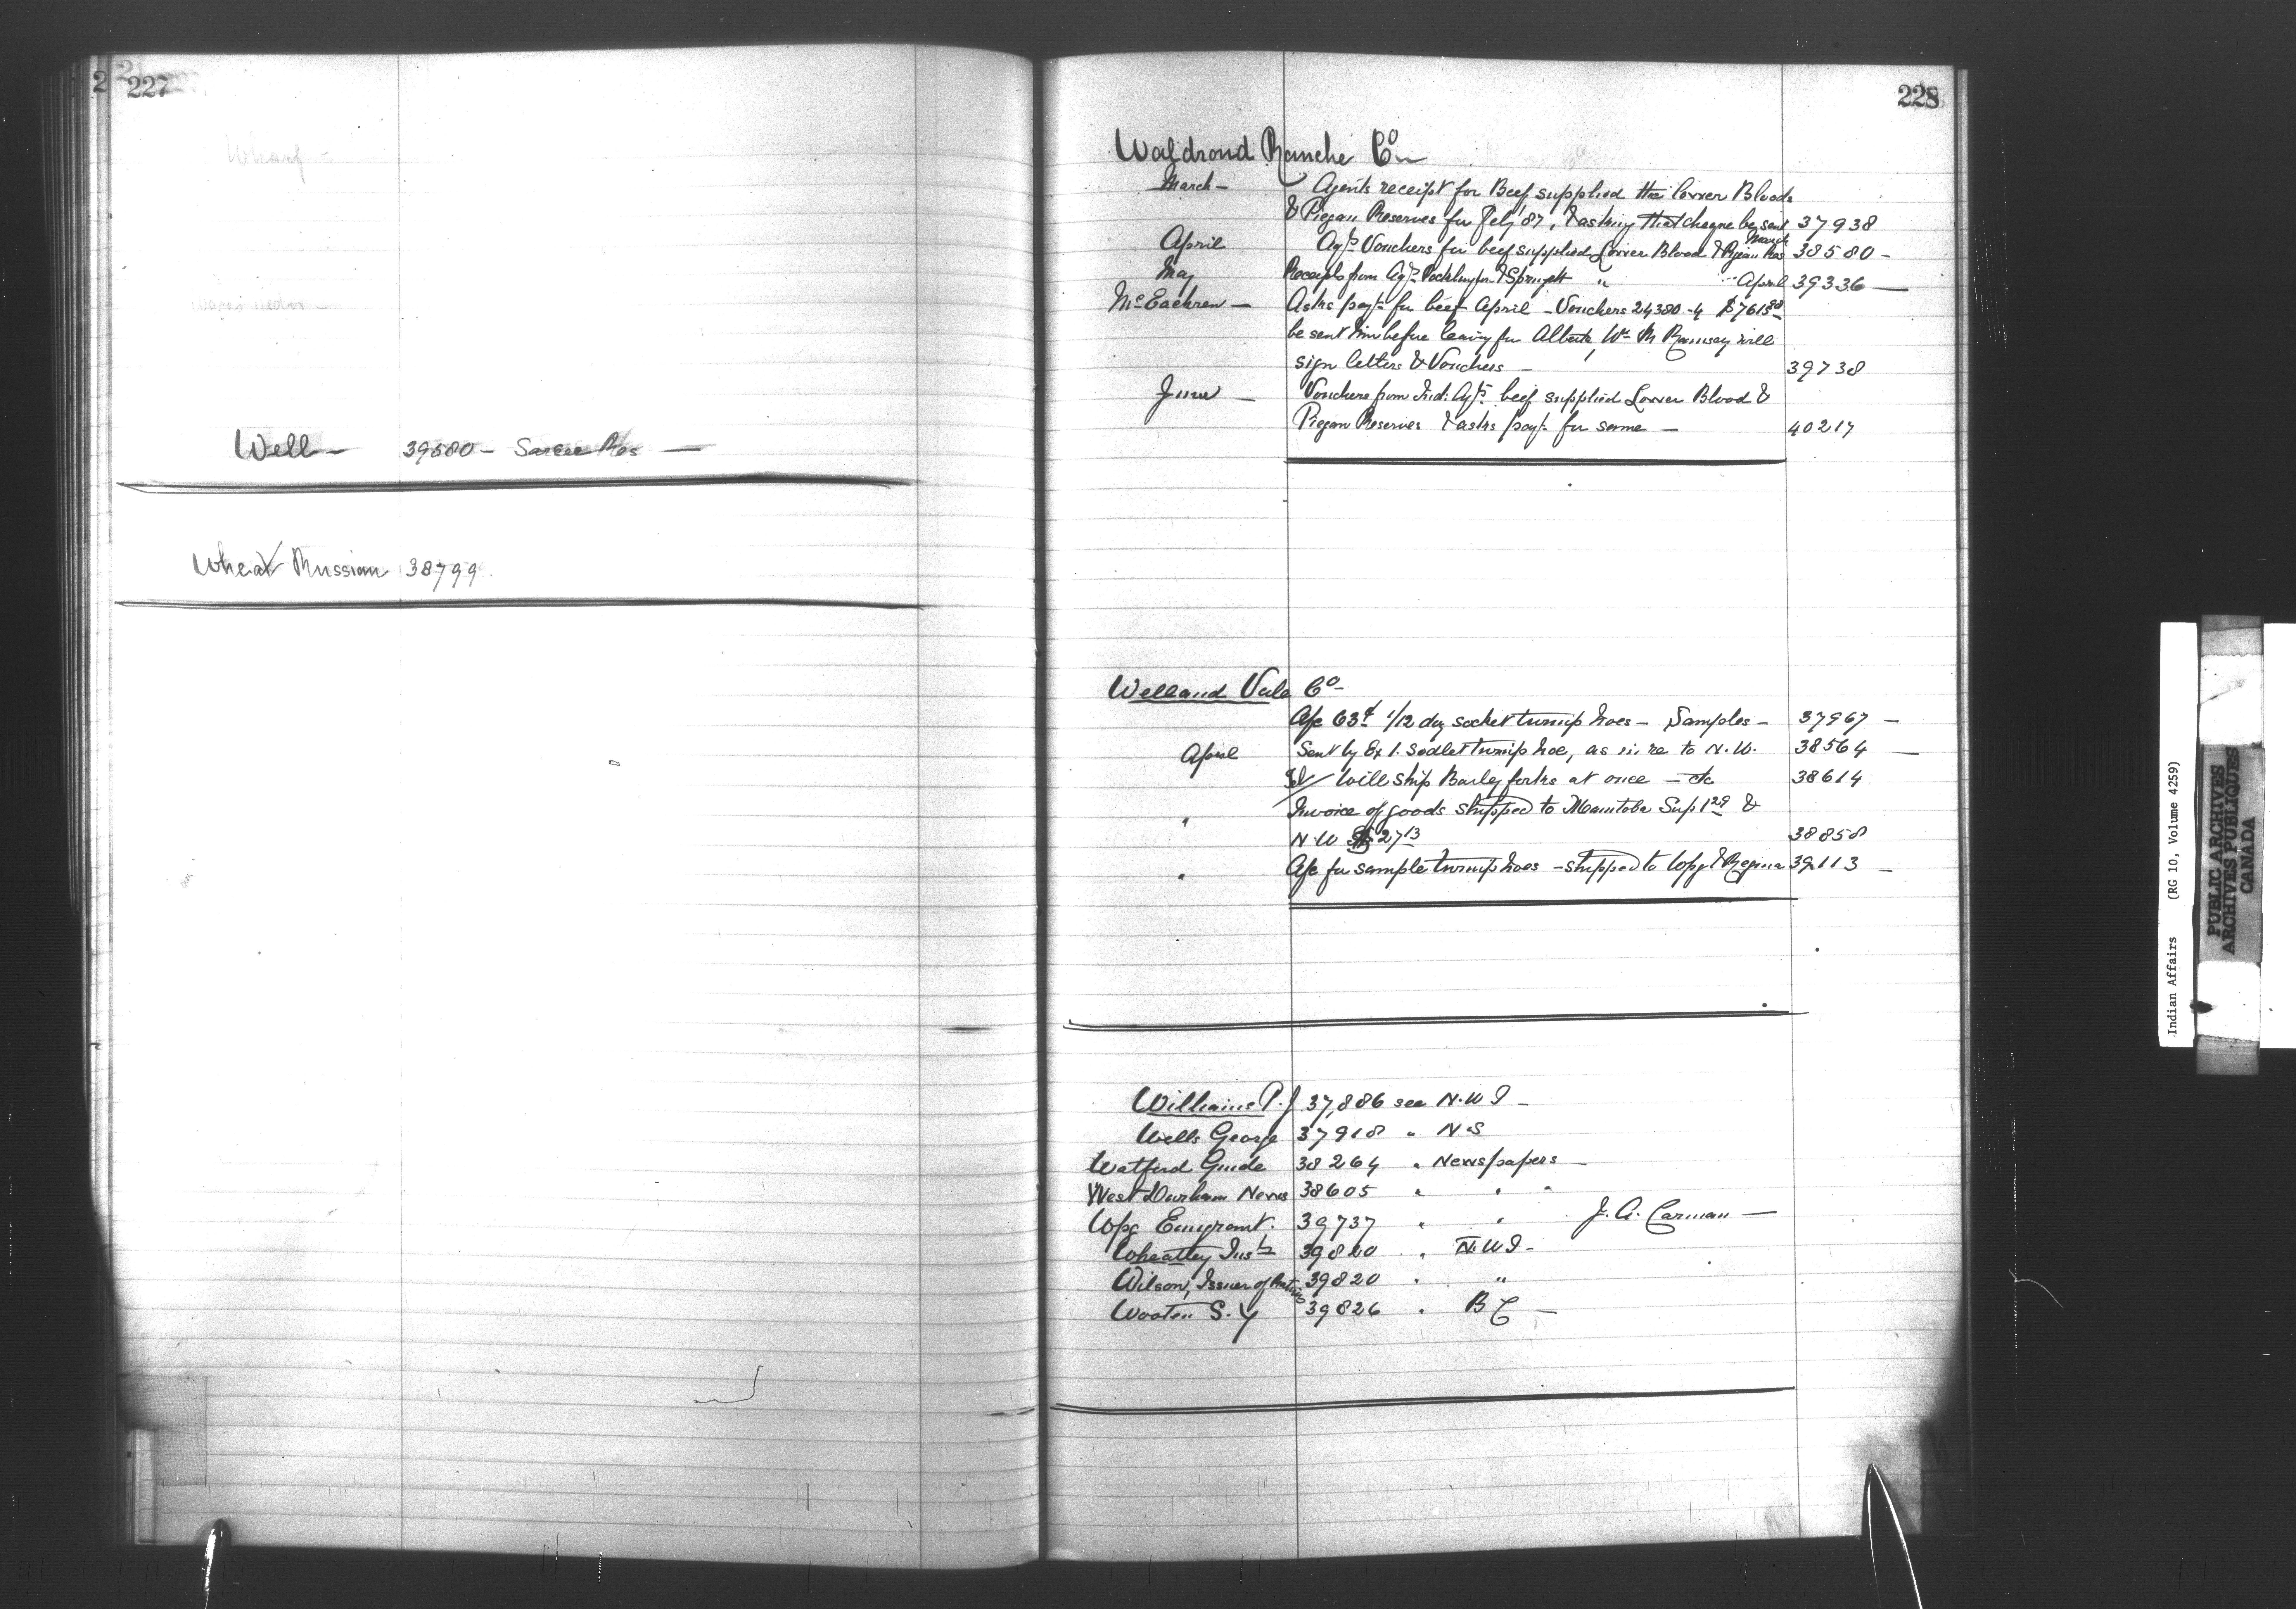 227
Wharf -
Well - 39580 - Sarcee Res -
Wheat Russian 38799
228
Waldrond Ranche Co
March - Agents receipt for Beef supplied the lower Bloods
& Piegan Reserves for Feby '87, & asking that cheque be sent 37938
March
April Agts Vouchers for beef supplied Lower Blood & Piegan Res 38580 -
May Receipts from Agts Pocklington & Springett " " April 39336 -
McEachren - Asks payt for beef April - Vouchers 24380-4 $7615
be sent him before leaving for Alberta, Wm M Ramsay will
sign letters & Vouchers - 39738
June - Vouchers from Ind: Agts beef supplied Lower Blood &
Piegan Reserves & asks payt for same - 40217
Welland Vale Co -
A/c 63c 1/12 doz socket turnip hoes - Samples - 37967 -
April Sent by Ex 1. Socket turnip hoe, as in re to N.W. 38564 -
Will ship Barley forks at once - &c 38614
" Invoice of goods shipped to Manitoba Sup 1 29 &
N.W. 27 13 38858
" A/c for sample turnip hoes - shipped to Wpg & Regina 39113 -
Williams P. J 37,886 see N.W T -
Wells George 37918 " N.S
Watford Guide 38264 " Newspapers -
West Durham News 38605 " " "
Wpg Emigrant. 39737 " " J. A. Carman -
Wheatley Instr 39820 " N.W T -
Wilson, Issuer of Rations 39820 " "
Wooten S. Y 39826 " B C -
Indian Affairs (RG 10, Volume 4259)
PUBLIC ARCHIVES
ARCHIVES PUBLIQUES
CANADA